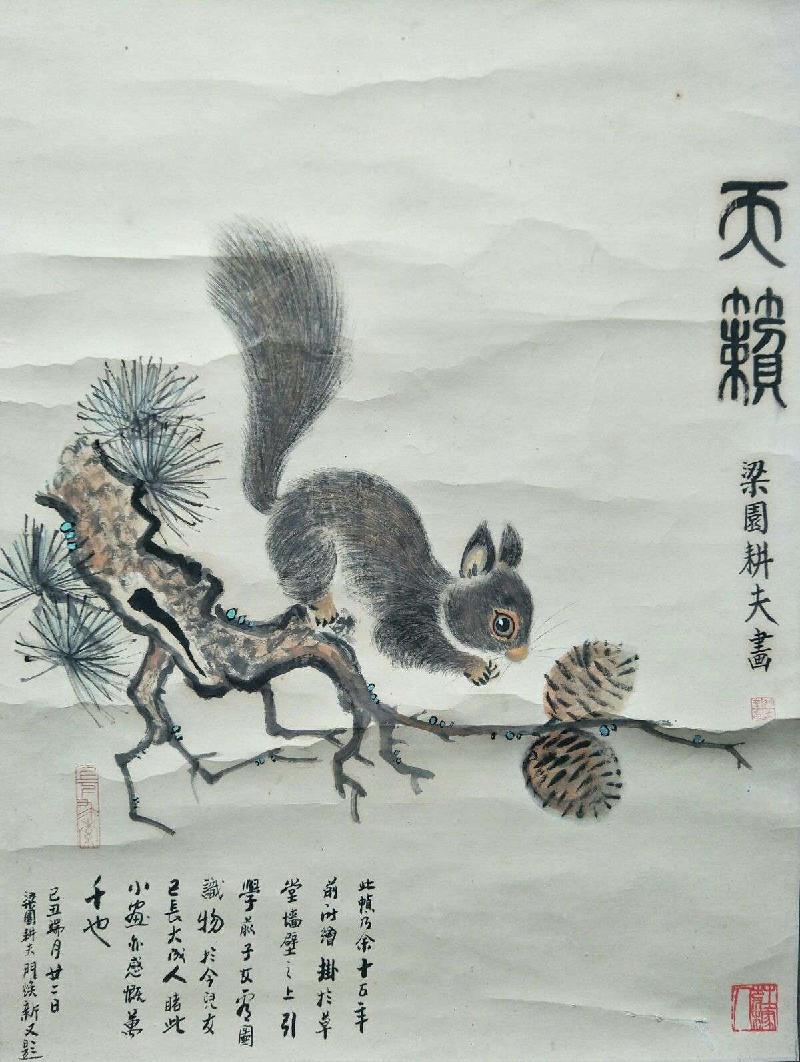 天籟
梁園耕夫畫
此幀乃余十五年
前所繪掛於草
堂墙壁之上引
學前子女看圖
識物於今兒女
已長大成人睹此
小畫亦感慨萬
千也
己丑端月廿二日
梁園耕夫門煥新又題